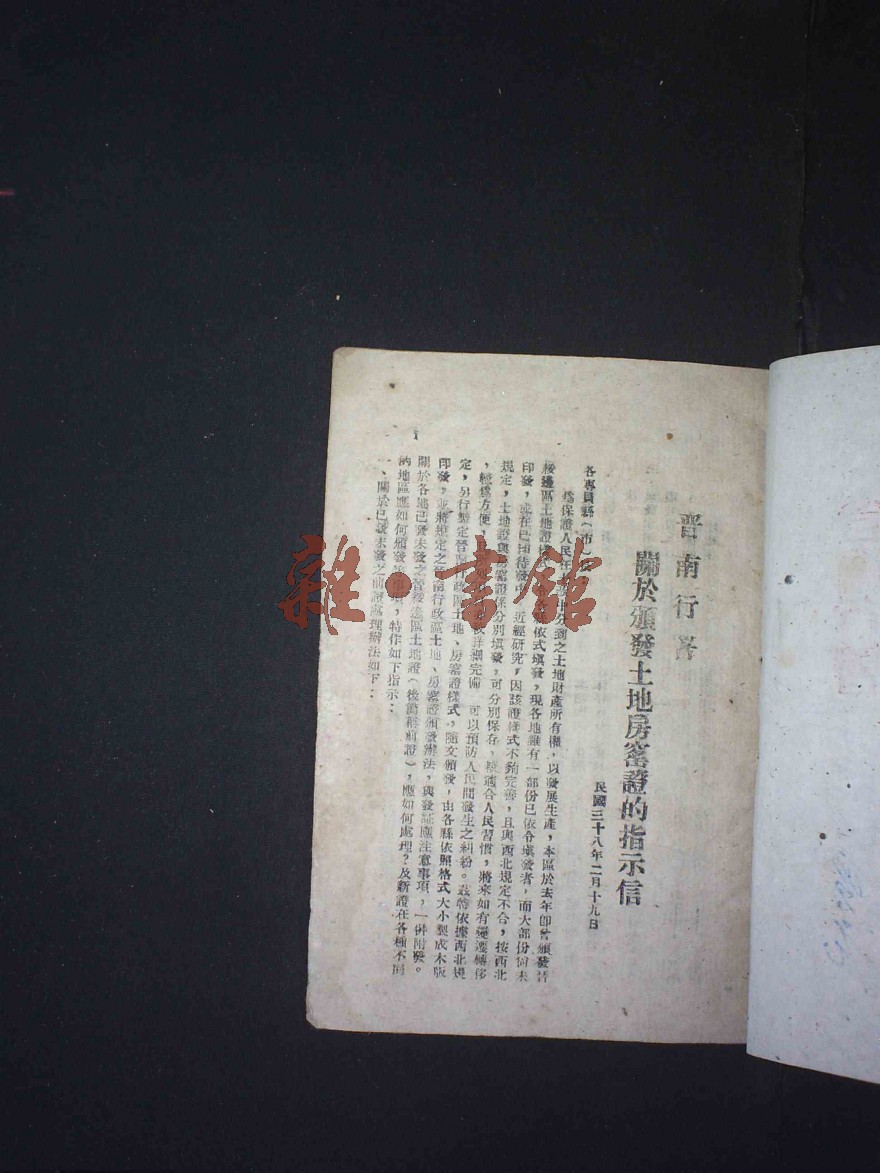 晋南行署
關於頒發土地房窰證的指示信
民國三十八年二月十九日
各專員縣(市)
為保證人民土地財產所有權,以發展生產,本區於去年即曾頒發晉
綏邊區土地證樣式,依式填發,現各地雖有一部份已依令填發者,而大部份尚未
印發,或在已填待發中,近經研究,因該證樣式不夠完善,且與西北規定不合,按西北
規定,土地證與房窰證係分別填發,可分別保存,較適合人民習慣,將來如有變遷轉移
,較為方便,詳細完備 可以預防人民間發生之糾紛。茲特依據西北規
定,另行製定晉南行政區土地、房窰證樣式,隨文頒發,由各縣依照格式大小製成木版
印發,並將規定之晉南行政區土地、房窰證頒發辦法,與發証應注意事項,一併附發。
關於各地已發未發之晉綏邊區土地證(後簡稱前證),應如何處理?及新證在各種不同
的地區應如何頒發等項,特作如下指示:
一、關於已發未發之前證處理辦法如下:
1
雜·書館